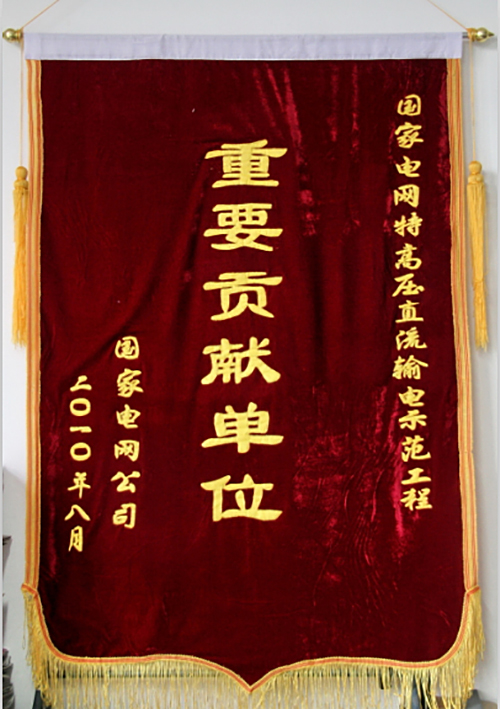 国家电网特高压直流输电示范工程
重要贡献单位
国家电网公司
二〇一〇年八月